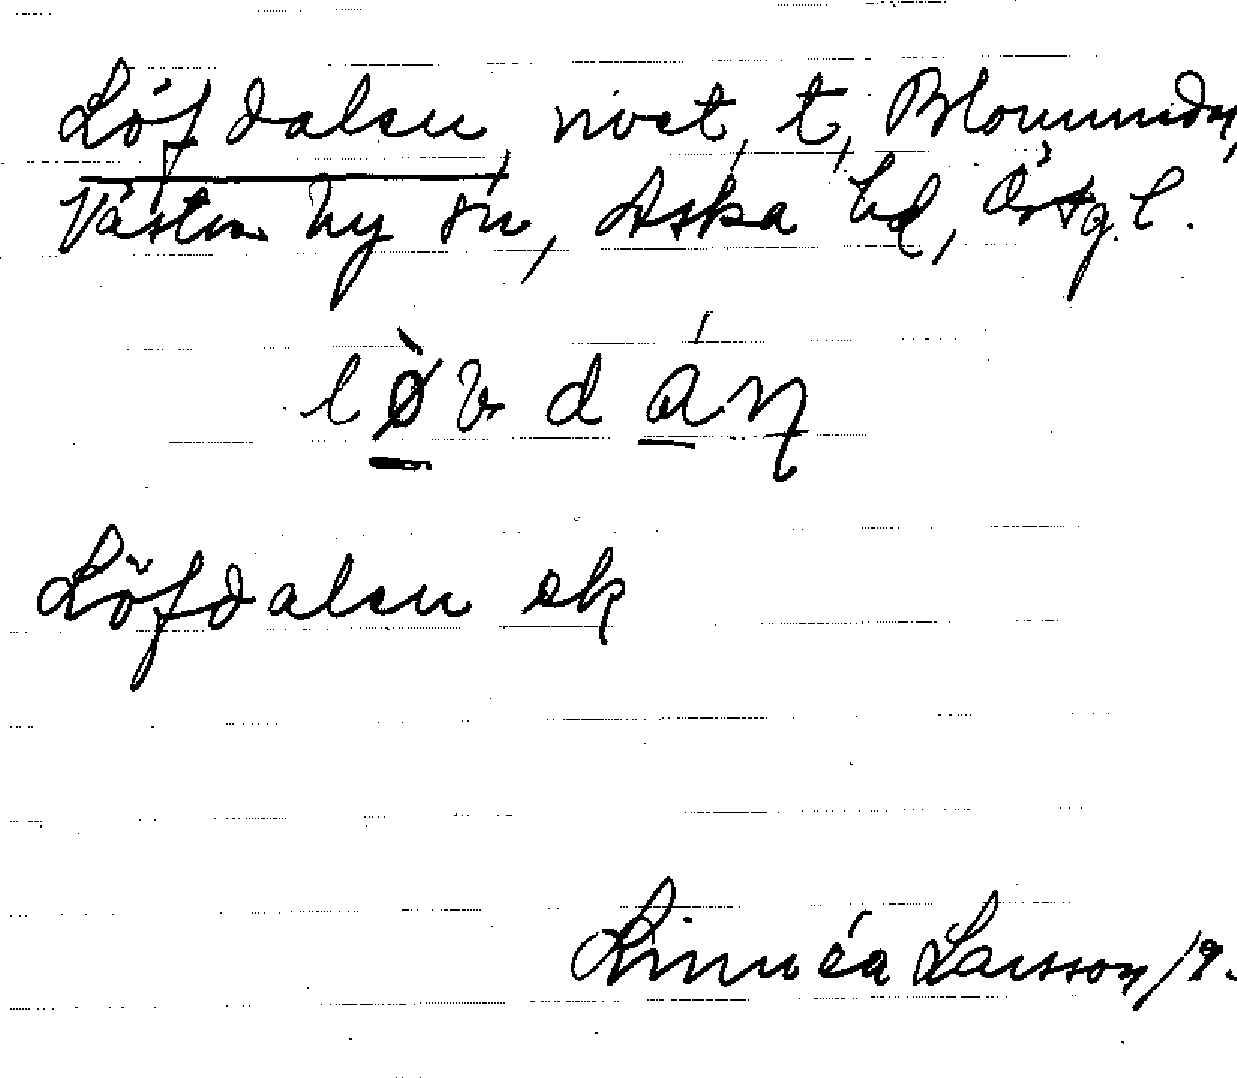 Löfdalen, rivet, t, Blommedal,
Västra Ny sn, Aska hd, Östg. l.
lø̀vdáṇ
Löfdalen ek
Linnéa Larsson /